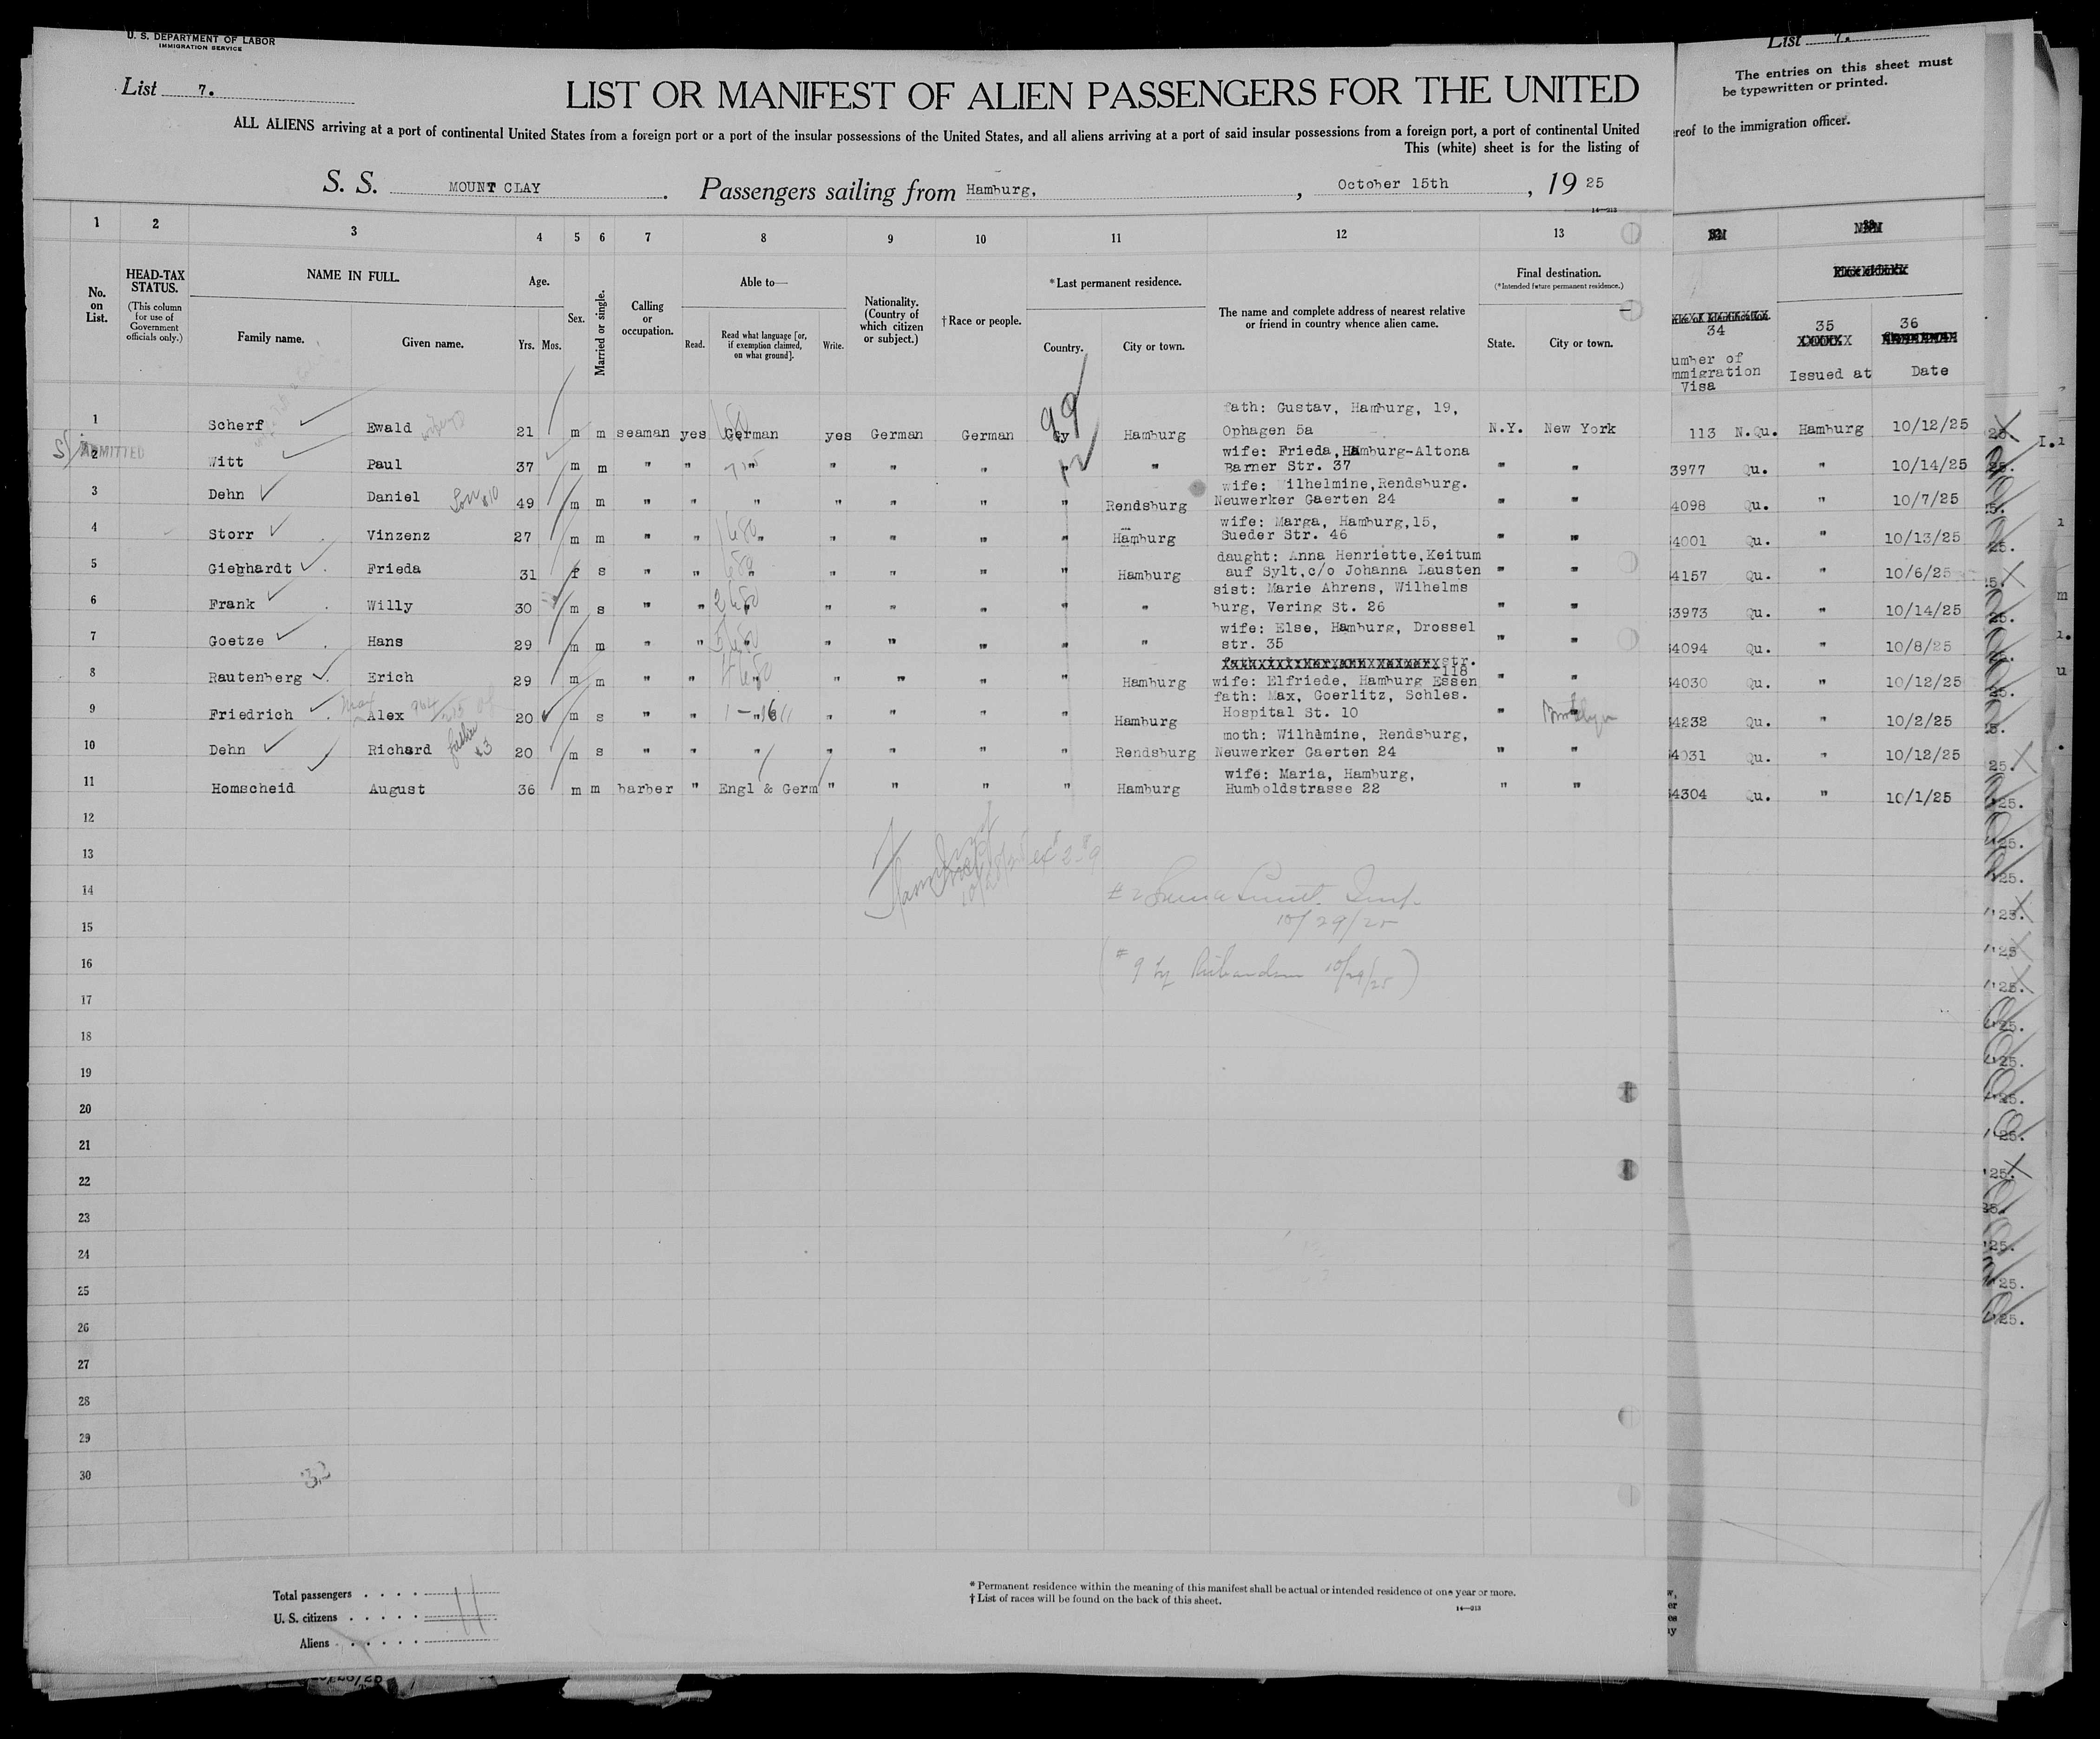 U. S. DEPARTMENT OF LABOR
IMMIGRATION SERVICE
List 7.
LIST OR MANIFEST OF ALIEN PASSENGERS FOR THE UNITED
ALL ALIENS arriving at a port of continental United States from a foreign port or a port of the insular possessions of the United States, and all aliens arriving at a port of said insular possessions from a foreign port, a port of continental United
This (white) sheet is for the listing of
S. S. MOUNT CLAY. Passengers sailing from Hamburg, , October 15th, 19 25
14—213
List 7.
The entries on this sheet must
be typewritten or printed.
reof to the immigration officer.
1 2 3 4 5 6 7 8 9 10 11 12 13
No. on List.
HEAD-TAX STATUS.
(This column for use of Government officials only.)
NAME IN FULL.
Family name. Given name.
Age.
Yrs. Mos.
Sex.
Married or single.
Calling or occupation.
Able to—
Read. Read what language [or, if exemption claimed, on what ground]. Write.
Nationality. (Country of which citizen or subject.)
†Race or people.
*Last permanent residence.
Country. City or town.
The name and complete address of nearest relative or friend in country whence alien came.
Final destination.
(*Intended future permanent residence.)
State. City or town.
34 35 36
umber of mmigration Visa
Issued at
Date
1 Scherf Ewald 21 m m seaman yes German yes German German Gy Hamburg fath: Gustav, Hamburg, 19, Ophagen 5a N.Y. New York 113 N.Qu. Hamburg 10/12/25
ADMITTED
2 Witt Paul 37 m m " " " " " " " " wife: Frieda, Hamburg-Altona Barner Str. 37 " " 3977 Qu. " 10/14/25
3 Dehn Daniel Son #10 49 m m " " " " " " " Rendsburg wife: Wilhelmine, Rendsburg. Neuwerker Gaerten 24 " " 4098 Qu. " 10/7/25
4 Storr Vinzenz 27 m m " " " " " " " Hamburg wife: Marga, Hamburg, 15, Sueder Str. 46 " " 4001 Qu. " 10/13/25
5 Giebhardt Frieda 31 f s " " " " " " " Hamburg daught: Anna Henriette, Keitum auf Sylt, c/o Johanna Lausten " " 4157 Qu. " 10/6/25
6 Frank Willy 30 m s " " " " " " " " sist: Marie Ahrens, Wilhelms burg, Vering St. 26 " " 3973 Qu. " 10/14/25
7 Goetze Hans 29 m m " " " " " " " " wife: Else, Hamburg, Drossel str. 35 " " 4094 Qu. " 10/8/25
8 Rautenberg Erich 29 m m " " " " " " " Hamburg str. 118 wife: Elfriede, Hamburg Essen " " 4030 Qu. " 10/12/25
9 Friedrich Alex 20 m s " " " " " " " Hamburg fath: Max, Goerlitz, Schles. Hospital St. 10 " " Brooklyn 4232 Qu. " 10/2/25
10 Dehn Richard father #3 20 m s " " " " " " " Rendsburg moth: Wilhlmine, Rendsburg, Neuwerker Gaerten 24 " " 4031 Qu. " 10/12/25
11 Homscheid August 36 m m barber " Engl & Germ " " " " Hamburg wife: Maria, Hamburg, Humboldstrasse 22 " " 4304 Qu. " 10/1/25
12
13
14
10/29/25
15
16
17
18
19
20
21
22
23
24
25
26
27
28
29
30
Total passengers
U. S. citizens
Aliens
11
*Permanent residence within the meaning of this manifest shall be actual or intended residence of one year or more.
†List of races will be found on the back of this sheet.
14—213